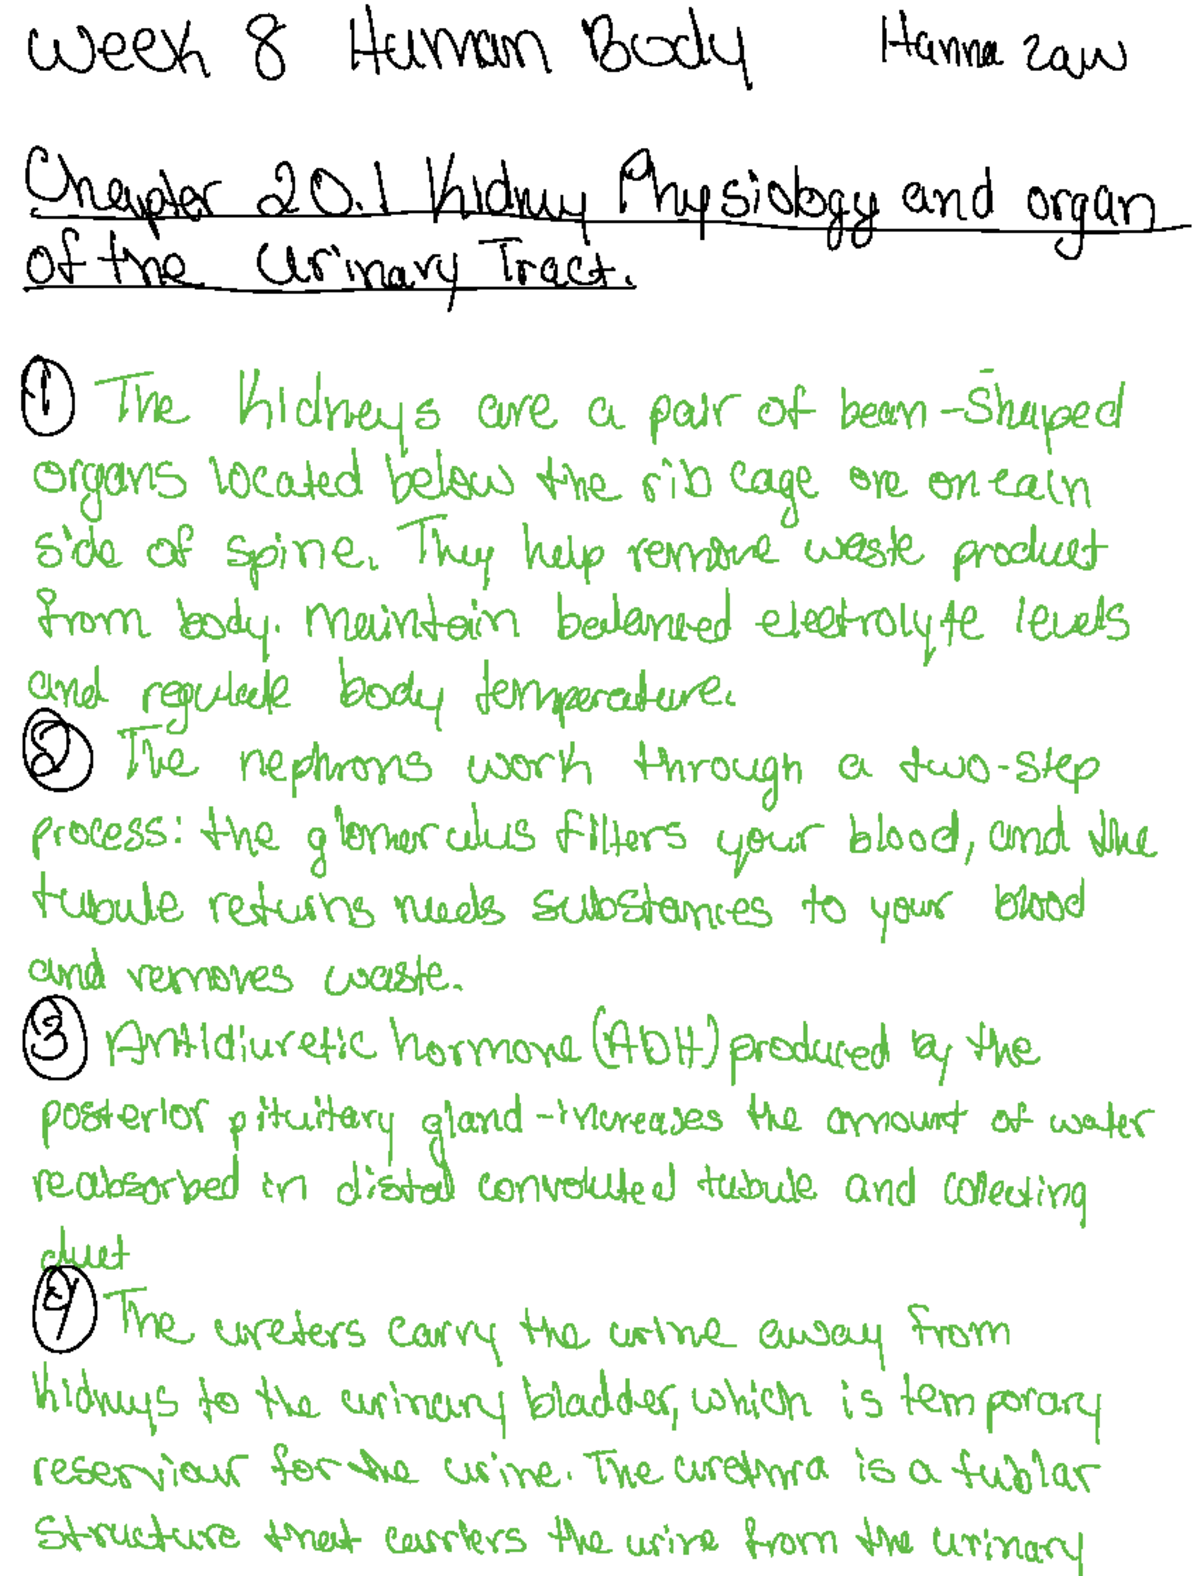 Week 8 Human Body Hanna Zaw
Chapter 20.1 Kidney Physiology and organ
of the Urinary Tract.
① The Kidneys are a pair of bean-shaped
organs located below the rib cage one on eain
side of spine. They help remove waste product
from body. Maintain balanced electrolyte levels
and regulate body temperature.
② The nephrons work through a two-step
process: the glomerulus filters your blood, and the
tubule returns needs substances to your blood
and removes waste.
③ Antidiuretic hormone (ADH) produced by the
posterior pituitary gland-increases the amount of water
reabsorbed in distal convoluted tubule and collecting
duct
④ The ureters carry the urine away from
Kidneys to the urinary bladder, which is temporary
reserviour for the urine. The urethra is a tublar
structure that carriers the urine from the urinary